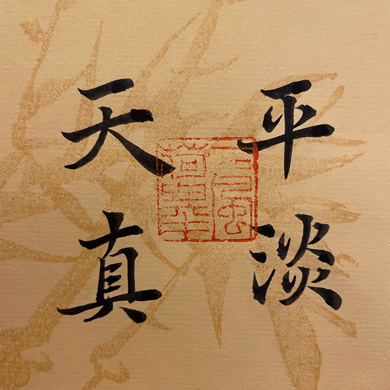 平淡
天真